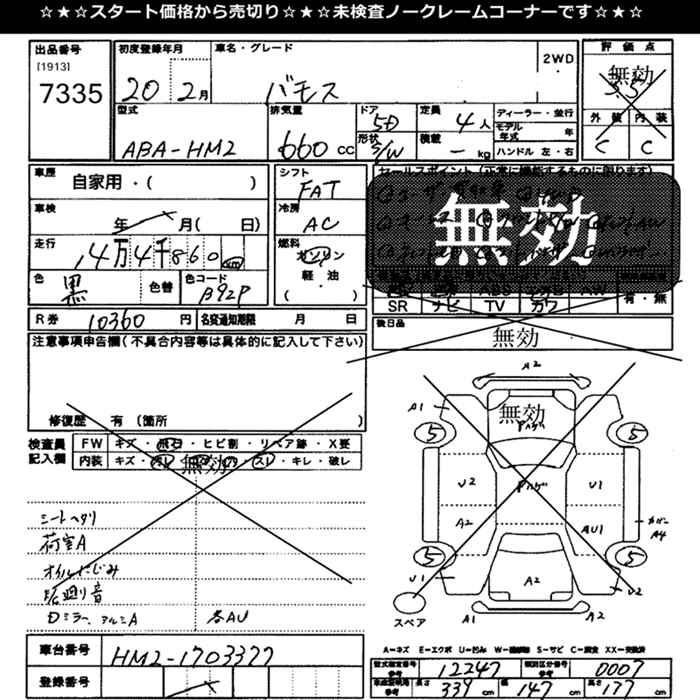 ☆★☆★スタート価格から売切り☆★☆★未検査ノークレームコーナーです☆★☆
出品番号 初度登録年月 車名・グレード 2WD 評価点
[1913] 7335 20 2月 バモス 無効 3.5
型式 排気量 ドア 5D 定員 4人 ディーラー・並行 外装 内装
ABA-HM2 660CC 形状 S/W 積載 - kg モデル年式 年 C C
ハンドル 左・右
車歴 自家用・( ) シフト FAT セールスポイント(正常に機能するものに限ります)
車検 年 月( 日) 冷房 AC 無効
走行 14万4千860km 燃料 ガソリン
色 黒 色替 色コード B92P 軽・油 ( )
SR ナビ TV カワ 有・無
R券 10360円 名変通知期限 月 日 後日品
無効
注意事項申告欄(不具合内容等は具体的に記入して下さい)
修復歴 有 (箇所 )
検査員記入欄 FW キズ・飛石・ヒビ割・リペア跡・X要
内装 キズ・スレ・キレ・破レ
無効
シートヘタリ
荷室A
オイルにじみ
足廻り音
Dミラー、アルミA 各AU
A2
A1
無効
5 5
U2 U1
A2 AU1 カバーA4
5 5
U1 A2 U2
スペア A1 A2
車台番号 HM2-1703377
登録番号
A=キズ E=エクボ U=凹ミ W=補修跡 S=サビ C=腐食 XX=交換済
型式指定番号 参考 12247 類別区分番号 参考 0007
長さ 339cm 幅 147cm 高さ 177cm